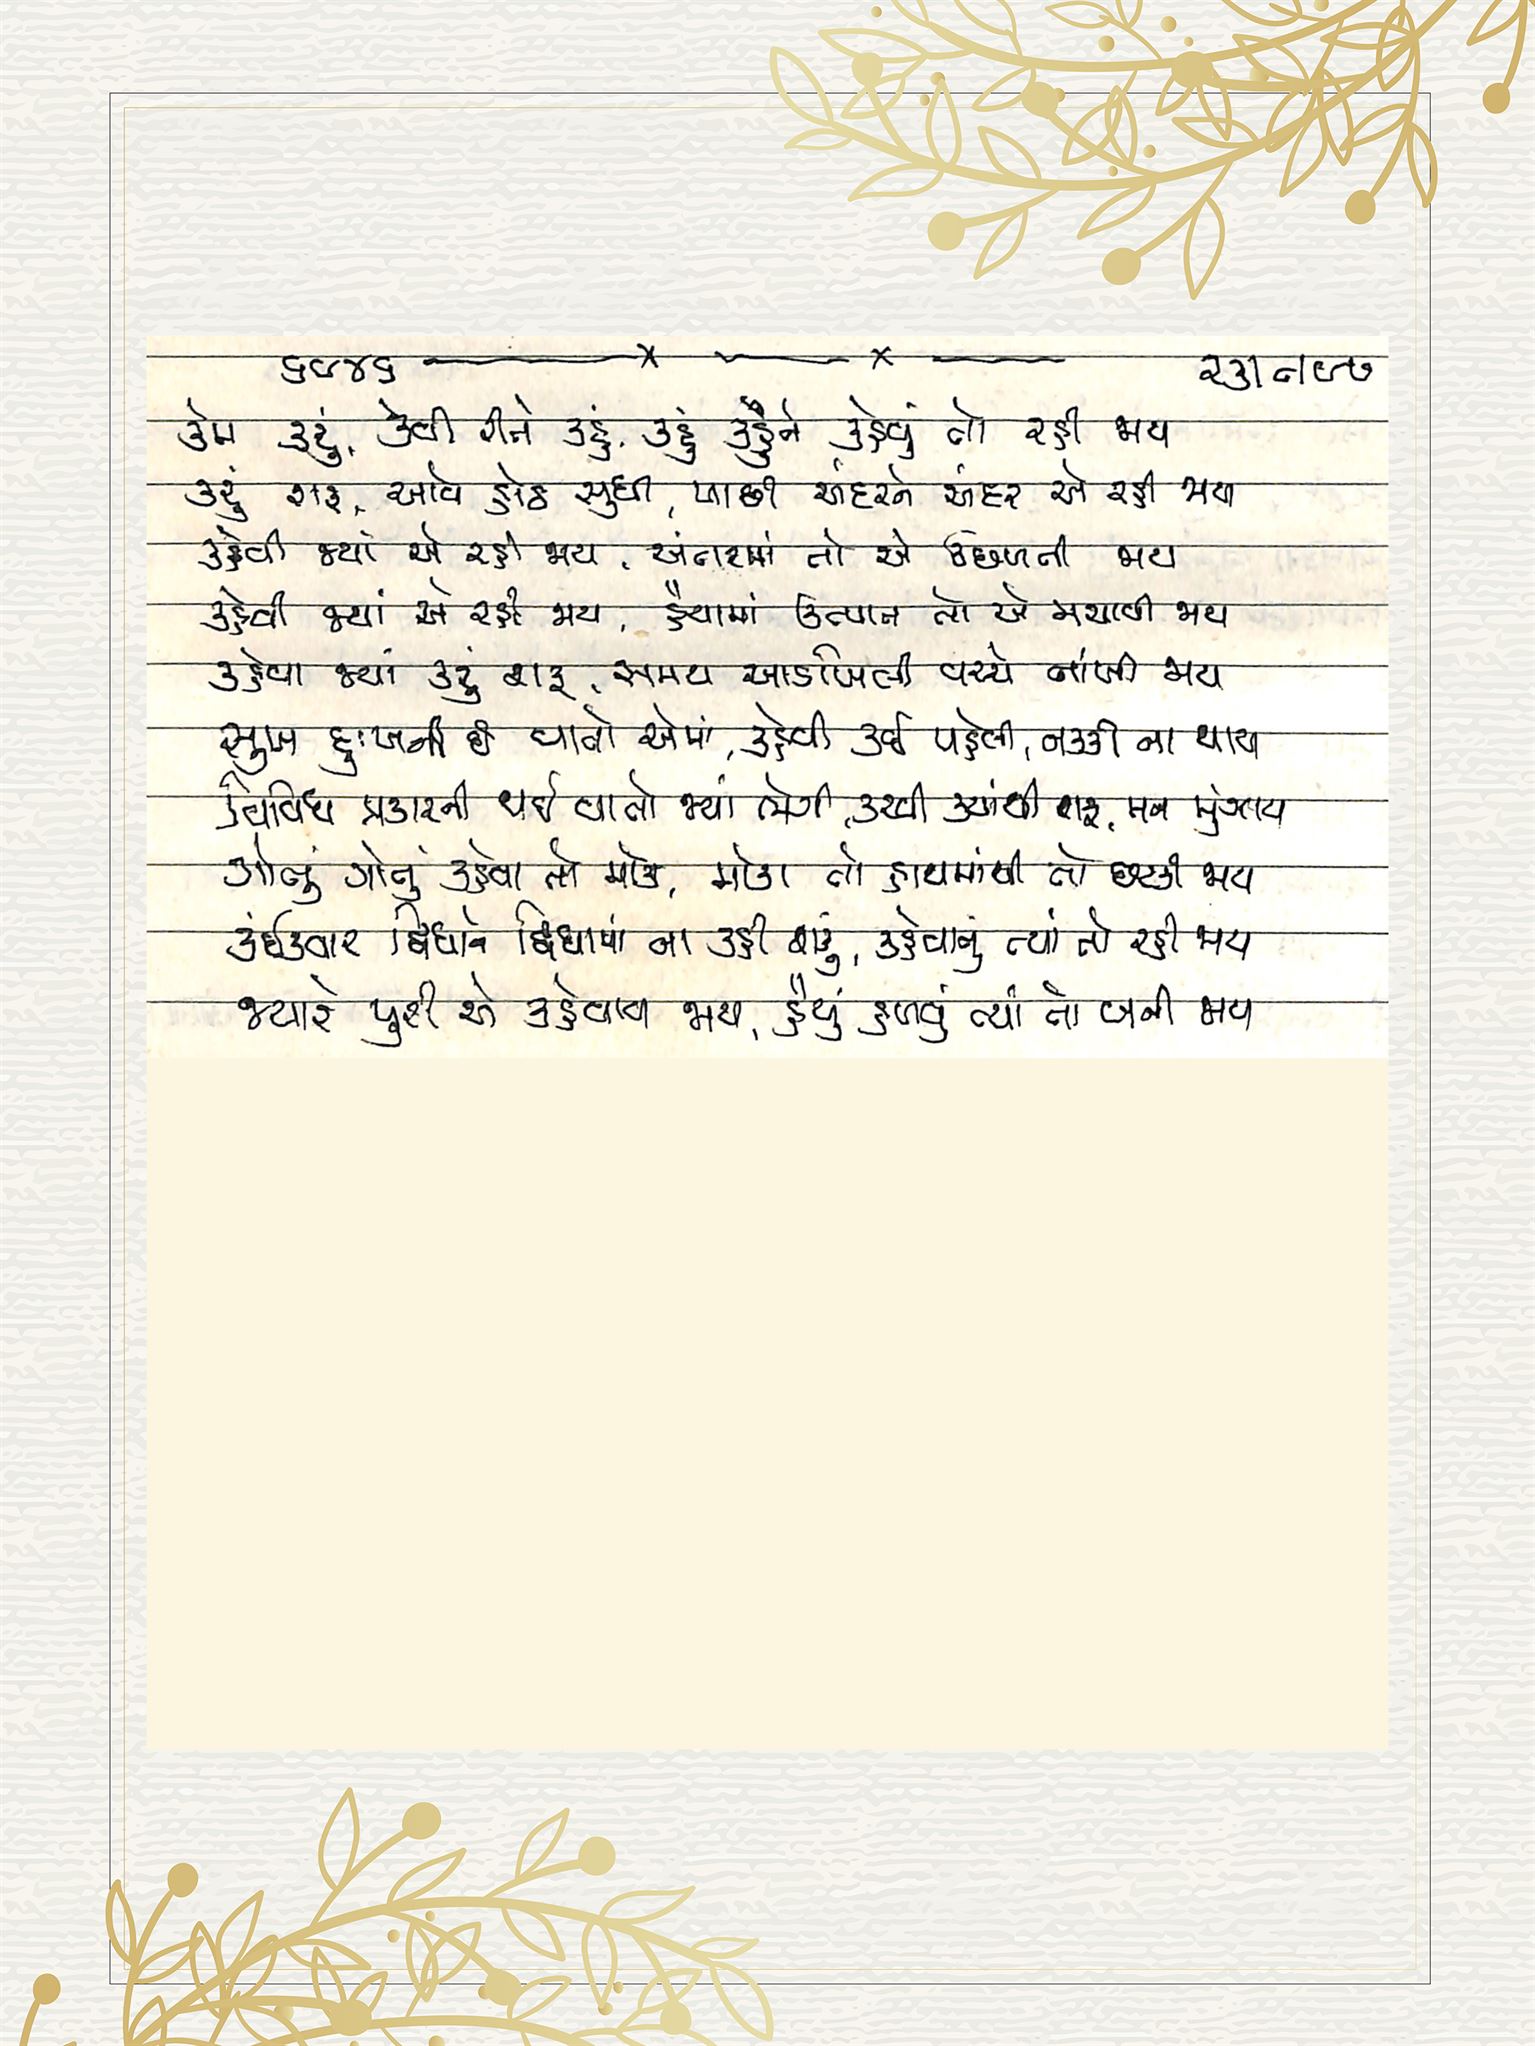 ૬૮૪૬ x x ૨૩૧૮૯૭
કેમ કરું, કેવી રીતે કહું, કહું કહુંને કહેવું તો રહી જાય
કરું શરૂ, આવે હોઠ સુધી, પાછી અંદરને અંદર એ રહી જાય
કહેવી જ્યાં એ રહી જાય, અંતરમાં તો એ ઉછળતી જાય
કહેવી જ્યાં એ રહી જાય, હૈયામાં ઉત્પાત તો એ મચાવી જાય
કહેવા જ્યાં કરું શરૂ, સમય આડખિલી વચ્ચે નાંખી જાય
સુખ દુઃખની છે વાતો એમાં, કહેવી કઈ પહેલી, નક્કી ના થાય
વિવિધ પ્રકારની થઈ વાતો જ્યાં ભેગી, કરવી ક્યાંથી શરૂ, મન મુંઝાય
ગોતું ગોતું કહેવા તો મોકા, મોકા તો હાથમાંથી તો છટકી જાય
કંઈકવાર દ્વિધાને દ્વિધામાં ના કહી શકું, કહેવાનું ત્યાં તો રહી જાય
જ્યારે પુરી એ કહેવાય જાય, હૈયું હળવું ત્યાં તો બની જાય